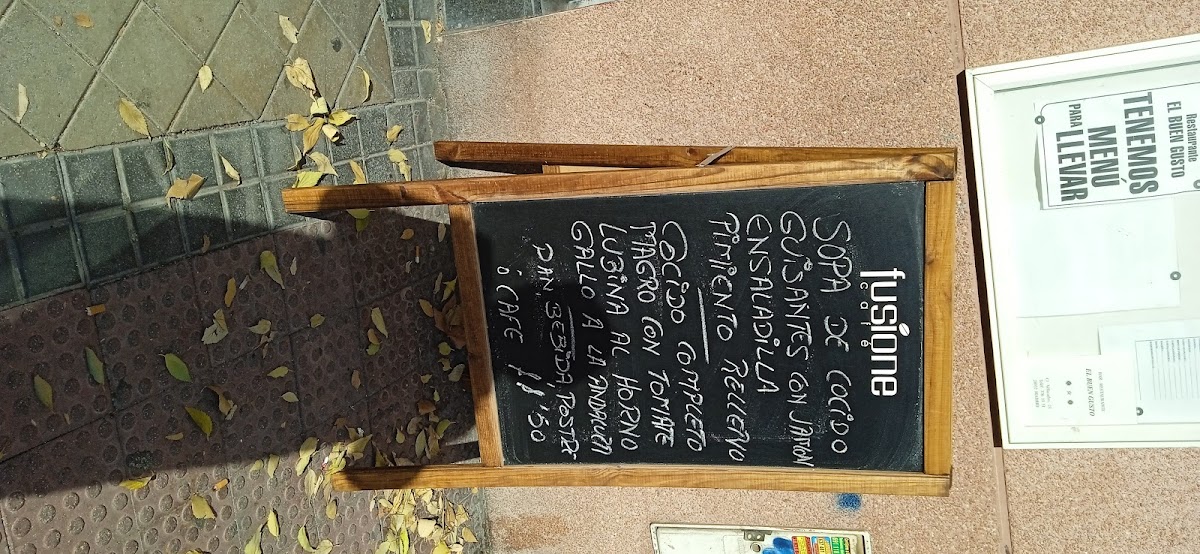 fusione
café
SOPA DE COCIDO
GUISANTES CON JAMON
ENSALADILLA
PIMIENTO RELLENO
COCIDO COMPLETO
MAGRO CON TOMATE
LUBINA AL HORNO
GALLO A LA ANDALUZA
PAN, BEBIDA, POSTRE
ó CAFE 11'50
Restaurante
EL BUEN GUSTO
TENEMOS
MENÚ
PARA LLEVAR
EL BUEN GUSTO